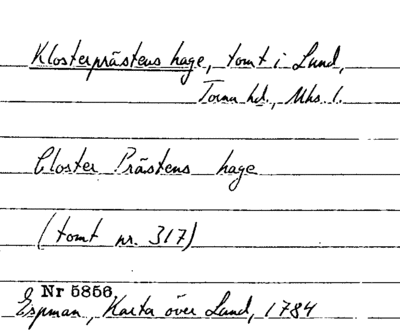 Klosterprästens hage, tomt i Lund,
Torna hd., Mhs l.
Closter Prästens hage
(tomt nr. 317)
Nr 5856
Espman, Karta över Lund, 1784